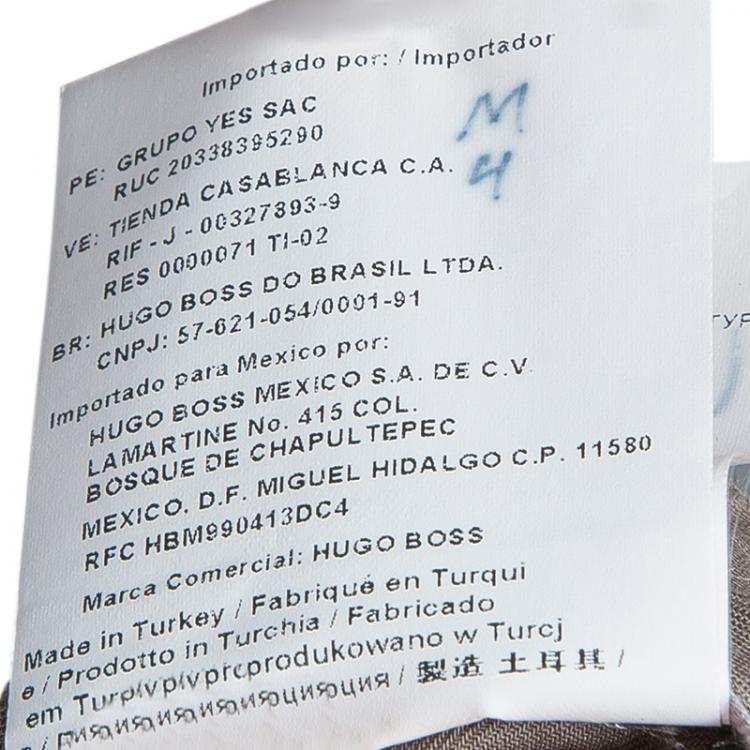 Importado por: / Importador
M
4
PE: GRUPO YES SAC
RUC 20338395290
VE: TIENDA CASABLANCA C.A.
RIF - J - 00327393-9
RES 0000071 TI-02
BR: HUGO BOSS DO BRASIL LTDA.
CNPJ: 57-621-054/0001-91
Importado para Mexico por:
HUGO BOSS MEXICO S.A. DE C.V
LAMARTINE No. 415 COL.
BOSQUE DE CHAPULTEPEC
MEXICO. D.F. MIGUEL HIDALGO C.P. 11580
RFC HBM990413DC4
Marca Comercial: HUGO BOSS
Made in Turkey / Fabriqué en Turqui
e / Prodotto in Turchia / Fabricado
em Turp produkowano w Turcj
/ 製造 土耳其 /
TYP